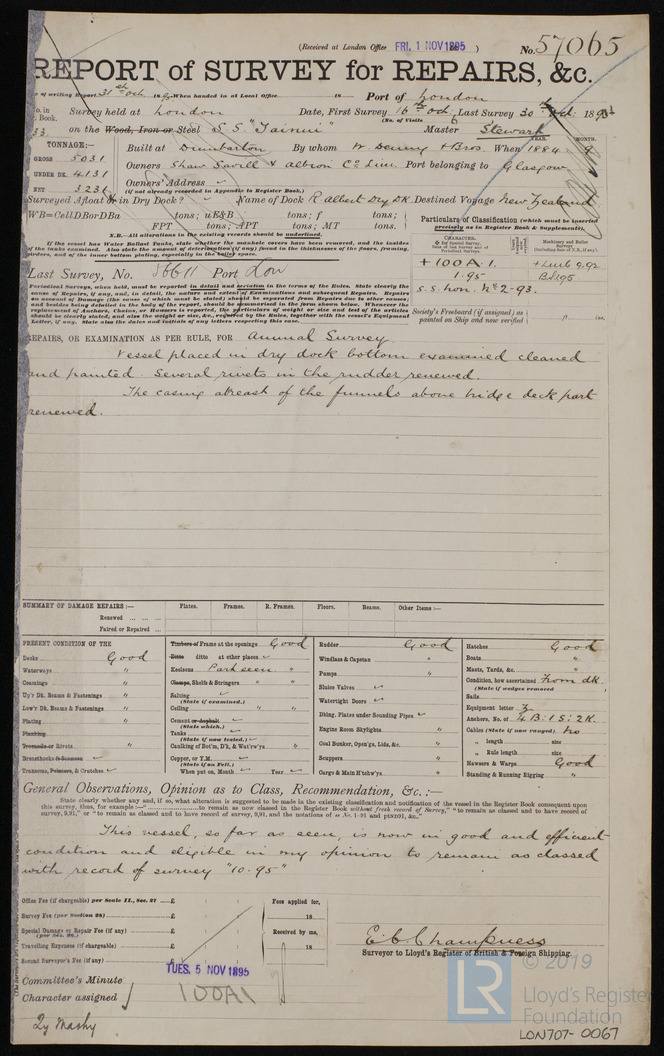 (Received at London Office FRI. 1 NOV 1895 ) No. 57065
REPORT of SURVEY for REPAIRS, &c.
of writing Report 31st Oct. 18 When handed in at Local Office 18 Port of London
No. in Survey held at London Date, First Survey 16th Oct. Last Survey 30th Oct. 1895
Book. (No. of Visits 6
33 on the Wood, Iron or Steel S.S. "Tainui" Master Stewart
TONNAGE:— YEAR. MONTH.
GROSS 5031 Built at Dumbarton By whom W. Denny & Bros. When 1884 9
UNDER DK. 4131 Owners Shaw Savill & Albion Co. Lim. Port belonging to Glasgow
NET 3231 Owners' Address
(if not already recorded in Appendix to Register Book.)
Surveyed Afloat or in Dry Dock? Name of Dock R Albert Dry Dk Destined Voyage New Zealand
WB=CellDBorDBa tons; uE&B tons; f tons;
FPT tons; APT tons; MT tons.
N.B.—All alterations in the existing records should be underlined.
If the vessel has Water Ballast Tanks, state whether the manhole covers have been removed, and the insides
of the tanks examined. Also state the amount of deterioration (if any) found in the thicknesses of the floors, framing,
girders, and of the inner bottom plating, especially in the boiler space.
Particulars of Classification (which must be inserted
precisely as in Register Book & Supplements).
CHARACTER.
Machinery and Boiler
Surveys
(including date of N.B., if any).
+100A1. +LMC 9,92
1.95 BS1,95
S.S. Lon. No 2-93.
Last Survey, No. 56611 Port Lon
Periodical Surveys, when held, must be reported in detail and seriatim in the terms of the Rules. State clearly the
cause of Repairs, if any, and, in detail, the nature and extent of Examinations and subsequent Repairs. Repairs
on account of Damage (the cause of which must be stated) should be separated from Repairs due to other causes;
and besides being detailed in the body of the report, should be summarised in the form shown below. Whenever the
masting of Anchors, Chains, or Hawsers is reported, the particulars of weight or size and test of the articles
should be clearly stated; and also the weight or size, &c., required by the Rules, together with the vessel's Equipment
Letter, if any. State also the dates and initials of any letters respecting this case.
Society's Freeboard (if assigned) as
painted on Ship and now verified } ft. ins.
REPAIRS, OR EXAMINATION AS PER RULE, FOR Annual Survey
Vessel placed in dry dock bottom examined cleaned
and painted. Several rivets in the rudder renewed.
The casing abreast of the funnels above bridge deck part
renewed.
SUMMARY OF DAMAGE REPAIRS:— Plates. Frames. R. Frames. Floors. Beams. Other Items:—
Renewed ... ... ...
Faired or Repaired ...
PRESENT CONDITION OF THE
Decks Good
Waterways "
Coamings "
Up'r Dk. Beams & Fastenings "
Low'r Dk. Beams & Fastenings "
Plating "
Planking
Treenails or Rivets "
Breasthooks & Sternson
Transoms, Pointers, & Crutches
Timbers or Frame at the openings Good
Ditto ditto at other places
Keelsons Part seen "
Clamps, Shelfs & Stringers " "
Salting
(State if examined.)
Ceiling " "
Cement or Asphalt
(State which.)
Tanks
(State if now tested.)
Caulking of Bot'm, D'k, & Wat'rw'ys "
Copper, or Y.M.
(State if on Felt.)
When put on, Month Year
Rudder Good
Windlass & Capstan "
Pumps "
Sluice Valves
Watertight Doors
Dblng. Plates under Sounding Pipes
Engine Room Skylights "
Coal Bunker, Open'gs, Lids, &c. "
Scuppers "
Cargo & Main H'tchw'ys "
Hatches Good
Boats "
Masts, Yards, &c. "
Condition, how ascertained From dk.
(State if wedges removed
Sails
Equipment letter
Anchors, No. of 4B. 1S; 2K.
Cables (State if now ranged) No
" length size
" Rule length size
Hawsers & Warps Good
Standing & Running Rigging "
General Observations, Opinion as to Class, Recommendation, &c.:—
State clearly whether any and, if so, what alteration is suggested to be made in the existing classification and notification of the vessel in the Register Book consequent upon
this survey, thus, for example:—" to remain as now classed in the Register Book without fresh record of Survey," "to remain as classed and to have record of
survey, 9,91," or "to remain as classed and to have record of survey, 9,91, and the notations of ss No. 1-91 and ptND91, &c."
This vessel, so far as seen, is now in good and efficient
condition and eligible in my opinion to remain as classed
with record of survey "10.95"
Office Fee (if chargeable) per Scale II., Sec. 27 £
Survey Fee (per Section 28) £
Special Damage or Repair Fee (if any)
(per Sec. 28.) £
Travelling Expenses (if chargeable) £
Second Surveyor's Fee (if any) £
Fees applied for,
18
Received by me,
18
E.C. Champness
Surveyor to Lloyd's Register of British & Foreign Shipping.
Committee's Minute TUES. 5 NOV 1895
Character assigned 100A1
LR © 2019
Lloyd's Register
Foundation
LON707-0067